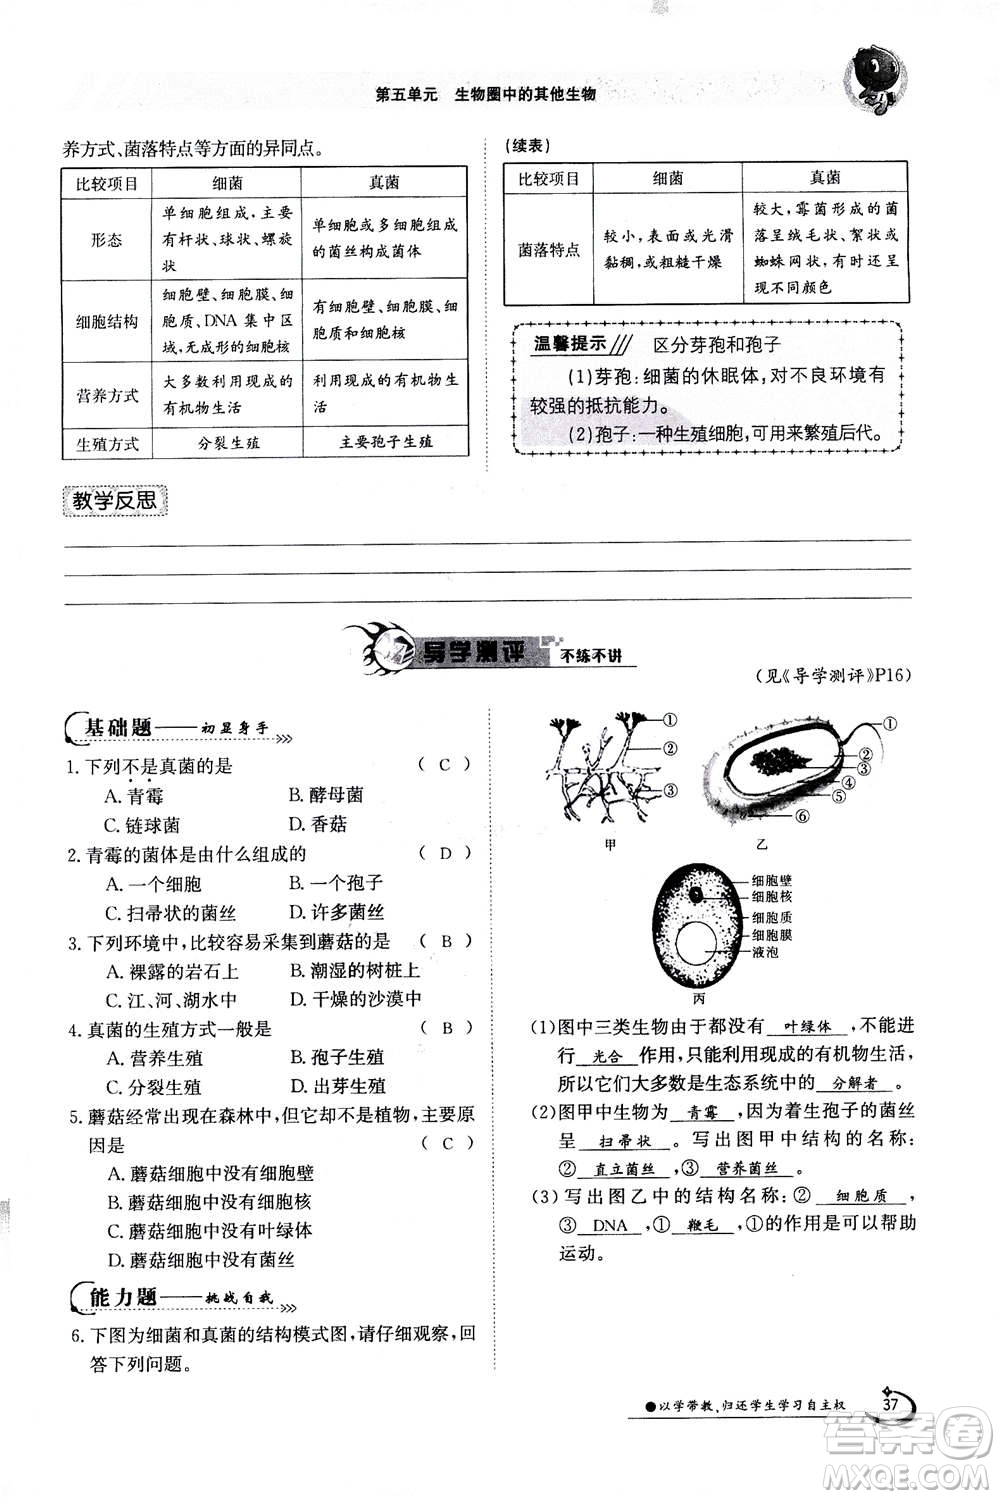 第五单元 生物圈中的其他生物
养方式、菌落特点等方面的异同点。
比较项目 细菌 真菌
形态
单细胞组成,主要
有杆状、球状、螺旋
状
单细胞或多细胞组成
的菌丝构成菌体
细胞结构
细胞壁、细胞膜、细
胞质、DNA 集中区
域,无成形的细胞核
有细胞壁、细胞膜、细
胞质和细胞核
营养方式
大多数利用现成的
有机物生活
利用现成的有机物生
活
生殖方式 分裂生殖 主要孢子生殖
(续表)
比较项目 细菌 真菌
菌落特点
较小,表面或光滑
黏稠,或粗糙干燥
较大,霉菌形成的菌
落呈绒毛状、絮状或
蜘蛛网状,有时还呈
现不同颜色
温馨提示 区分芽孢和孢子
(1)芽孢:细菌的休眠体,对不良环境有
较强的抵抗能力。
(2)孢子:一种生殖细胞,可用来繁殖后代。
教学反思
导学测评 不练不讲
(见《导学测评》P16)
基础题——初显身手
1. 下列不是真菌的是 ( C )
A. 青霉 B. 酵母菌
C. 链球菌 D. 香菇
2. 青霉的菌体是由什么组成的 ( D )
A. 一个细胞 B. 一个孢子
C. 扫帚状的菌丝 D. 许多菌丝
3. 下列环境中,比较容易采集到蘑菇的是 ( B )
A. 裸露的岩石上 B. 潮湿的树桩上
C. 江、河、湖水中 D. 干燥的沙漠中
4. 真菌的生殖方式一般是 ( B )
A. 营养生殖 B. 孢子生殖
C. 分裂生殖 D. 出芽生殖
5. 蘑菇经常出现在森林中,但它却不是植物,主要原
因是 ( C )
A. 蘑菇细胞中没有细胞壁
B. 蘑菇细胞中没有细胞核
C. 蘑菇细胞中没有叶绿体
D. 蘑菇细胞中没有液泡
能力题——挑战自我
6. 下图为细菌和真菌的结构模式图,请仔细观察,回
答下列问题。
① ② ③
甲
① ② ③ ④ ⑤ ⑥
乙
细胞壁
细胞核
细胞质
细胞膜
液泡
丙
(1)图中三类生物由于都没有 叶绿体 ,不能进
行 光合 作用,只能利用现成的有机物生活,
所以它们大多数是生态系统中的 分解者 。
(2)图甲中生物为 青霉 ,因为着生孢子的菌丝
呈 扫帚状 。写出图甲中结构的名称:
② 直立菌丝 ,③ 营养菌丝 。
(3)写出图乙中的结构名称:② 细胞质 ,
③ DNA ,① 鞭毛 ,①的作用是可以帮助
运动。
●以学带教,归还学生学习自主权
37
答案圈
MXQE.COM